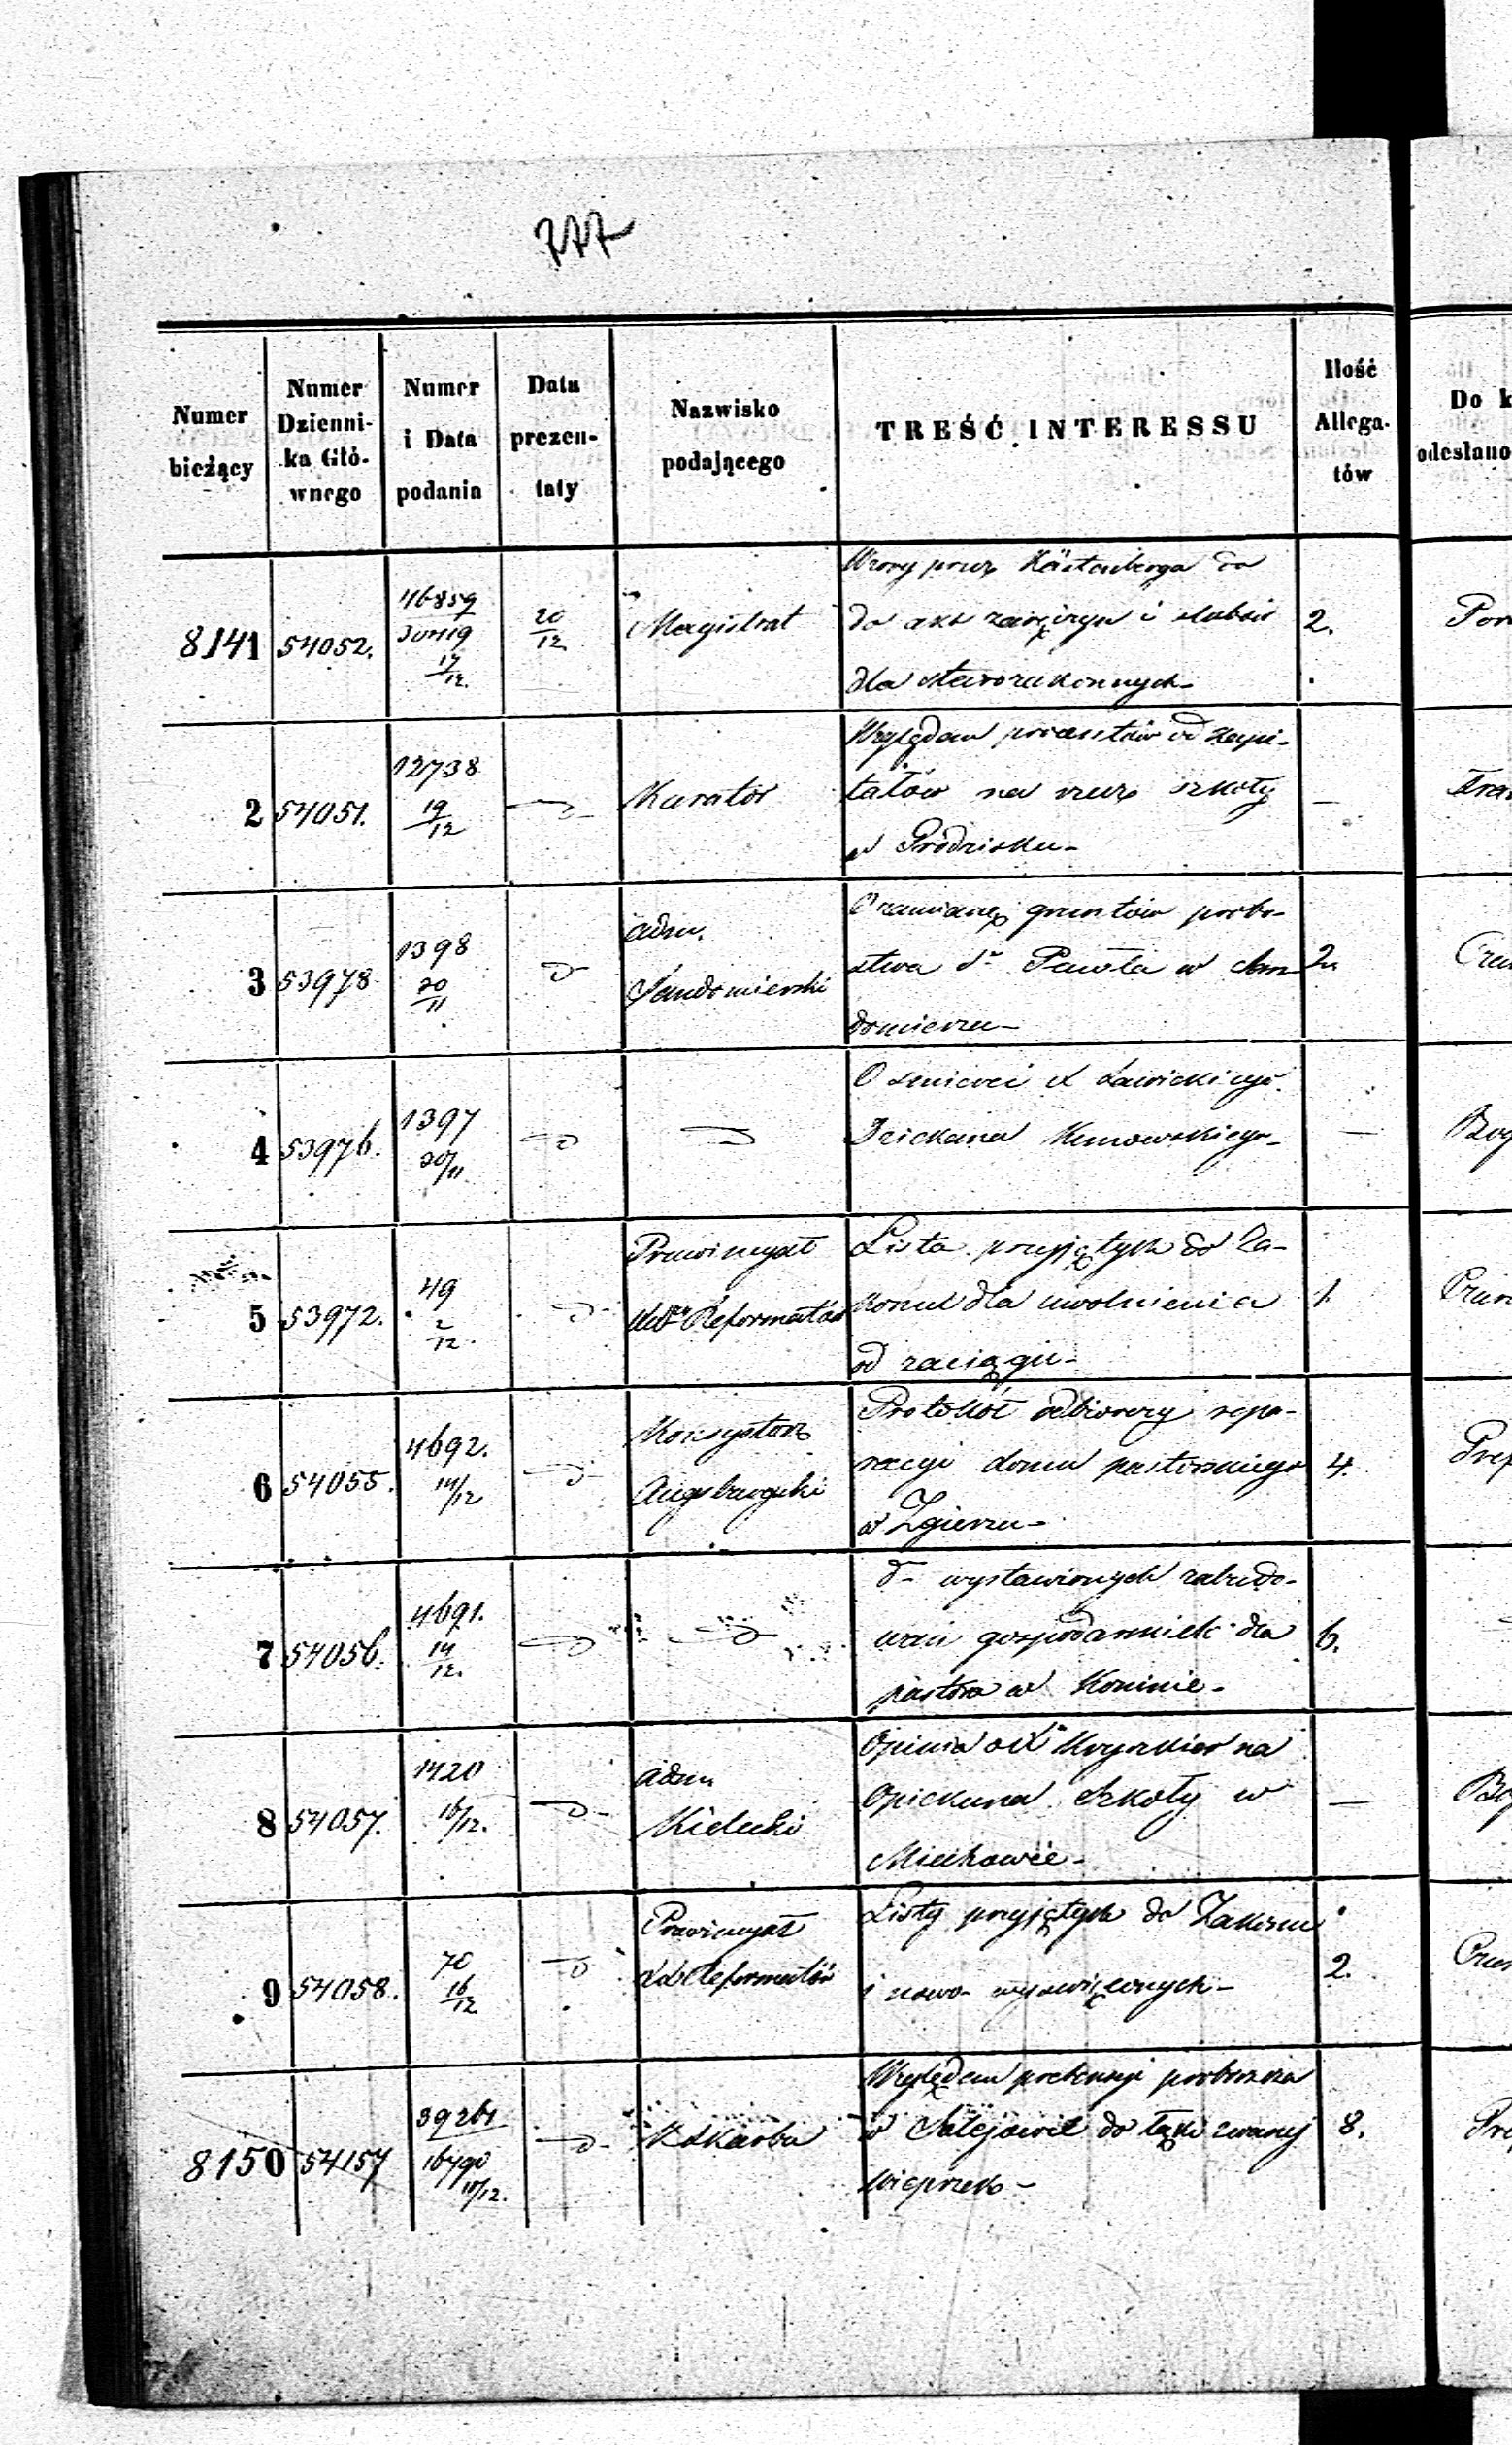 777
Numer bieżący | Numer Dzienni-ka Głó-wnego | Numer i Data podania | Data prezen-taty | Nazwisko podającego | TREŚĆ INTERESSU | Ilość Allega-tów | Do k odesłano
8141 | 54052. | 46859 17/12. | 20/12. | Magistrat | Wzory przez Kästenberga do
do akt zaręczyn i ślubów | 2.
dla starozakonnych-
2 | 54051. | 12738 19/12 | Kurator | Względem procentów od kapi-
tałów na rzecz szkoły | —
w Grodzisku-
3 | 53978 | 1398 20/11 | d- | adm. Sandomierski | O zamianę gruntów probo-
stwa Sgo Pawła w San | 2.
domierzu-
4 | 53976. | 1397 20/11 | d | d | O śmierci X Ławickiego
Dziekana Kunowskiego- | —
5 | 53972. | 49 2/12. | d- | Prowincyał XX Reformatów | Lista przyjętych do Za-
konu dla uwolnienia | 1.
od zaciągu-
6 | 54055. | 4692. 14/12 | d- | Konsystorz Augsburgski | Protokół odbiorczy repa-
racyi domu pastorskiego | 4.
w Zgierzu-
7 | 54056. | 4691. 14/12. | d | d | d- wystawionych zabudo-
wań gospodarskich dla | 6.
pastora w Koninie-
8 | 54057. | 1420 16/12. | d- | adm Kielecki | Opinia o X na
Opiekuna Szkoły w | —
Miechowie-
9 | 54058. | 70 16/12 | d | Prowincyał XX Reformatów | Listy przyjętych do Zakonu
i nowo wyświęconych- | 2.
8150 | 54157 | 39261 16790 11/12. | d- | K. Skarbu | Względem pretensyi proboszcza
w Sulejowie do łąki zwanej | 8.
Wieprzek-